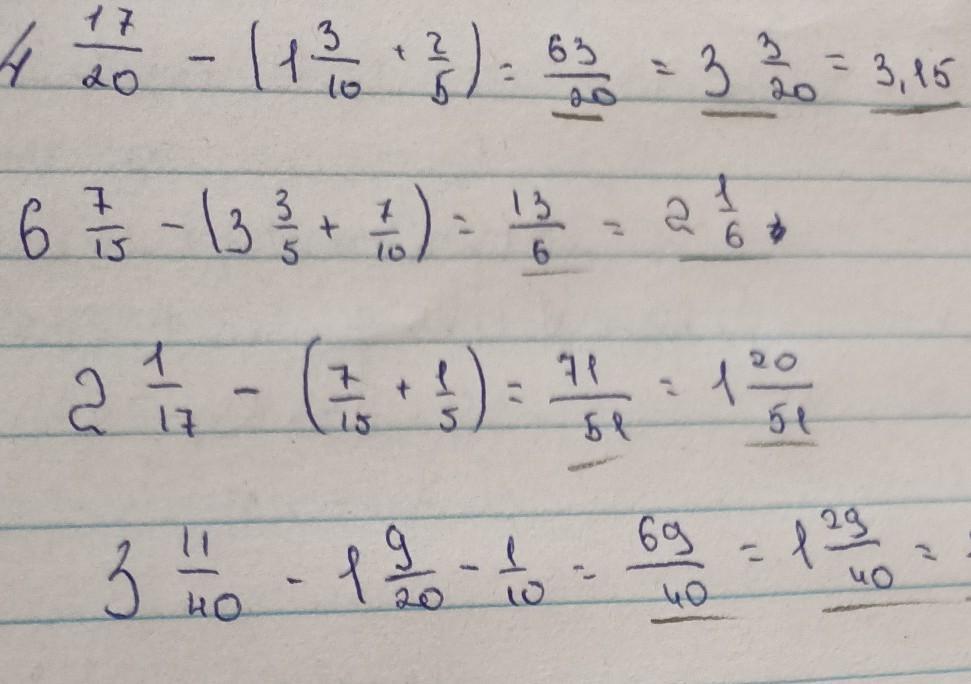 4 17/20 - (1 3/10 + 2/5) = 63/20 = 3 3/20 = 3,15
6 7/15 - (3 3/5 + 7/10) = 13/6 = 2 1/6
2 1/17 - (7/15 + 1/5) = 71/51 = 1 20/51
3 11/40 - 1 9/20 - 1/10 = 69/40 = 1 29/40 =